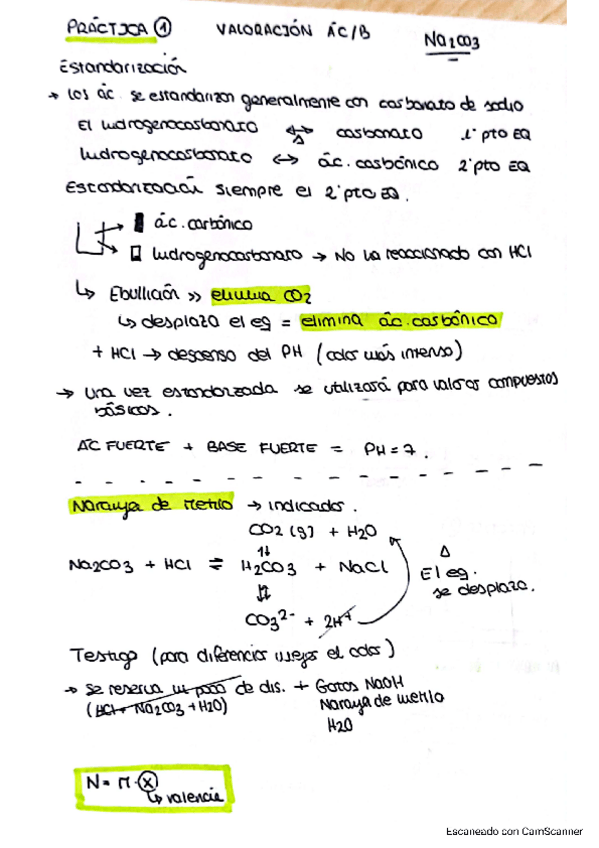 PRÁCTICA ① VALORACIÓN ÁC/B Na2CO3
Estandarización
→ Los ác. se estandarizan generalmente con carbonato de sodio
El hidrogenocarbonato ⇌ carbonato 1º pto EQ
Δ
hidrogenocarbonato ↔ ác. carbónico 2º pto EQ
Estandarización siempre el 2º pto EQ.
→ ác. carbónico
→ hidrogenocarbonato → No ha reaccionado con HCl
↳ Ebullición » elimina CO2
↳ desplaza el eq = elimina ác. carbónico
+ HCl → descenso del PH (color más intenso)
→ una vez estandarizada se utilizará para valorar compuestos
básicos.
AC FUERTE + BASE FUERTE = PH = 7.
Naranja de Metilo → indicador.
CO2 (g) + H2O
↑↓
Na2CO3 + HCl ⇌ H2CO3 + NaCl
Δ
El eq.
se desplaza.
⇅
CO3 2- + 2H+
Testigo (para diferenciar mejor el color)
→ se reserva un poco de dis. + Gotas NaOH
(HCl + Na2CO3 + H2O) Naranja de metilo
H2O
N = M · X
↳ valencia
Escaneado con CamScanner